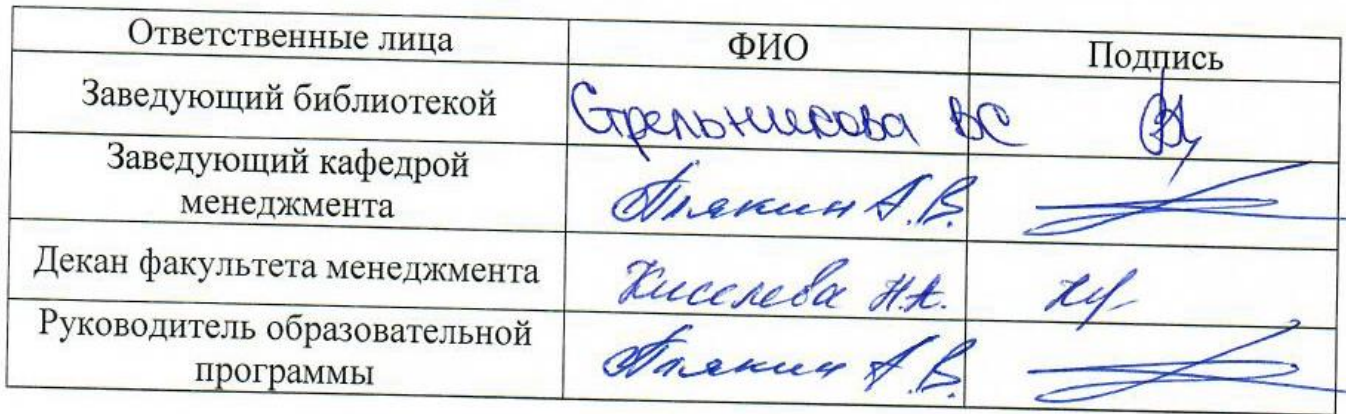 Ответственные лица ФИО Подпись
Заведующий библиотекой Стрельникова ВС
Заведующий кафедрой
менеджмента Плякин А.В.
Декан факультета менеджмента Киселева Н.Н.
Руководитель образовательной
программы Плякин А.В.